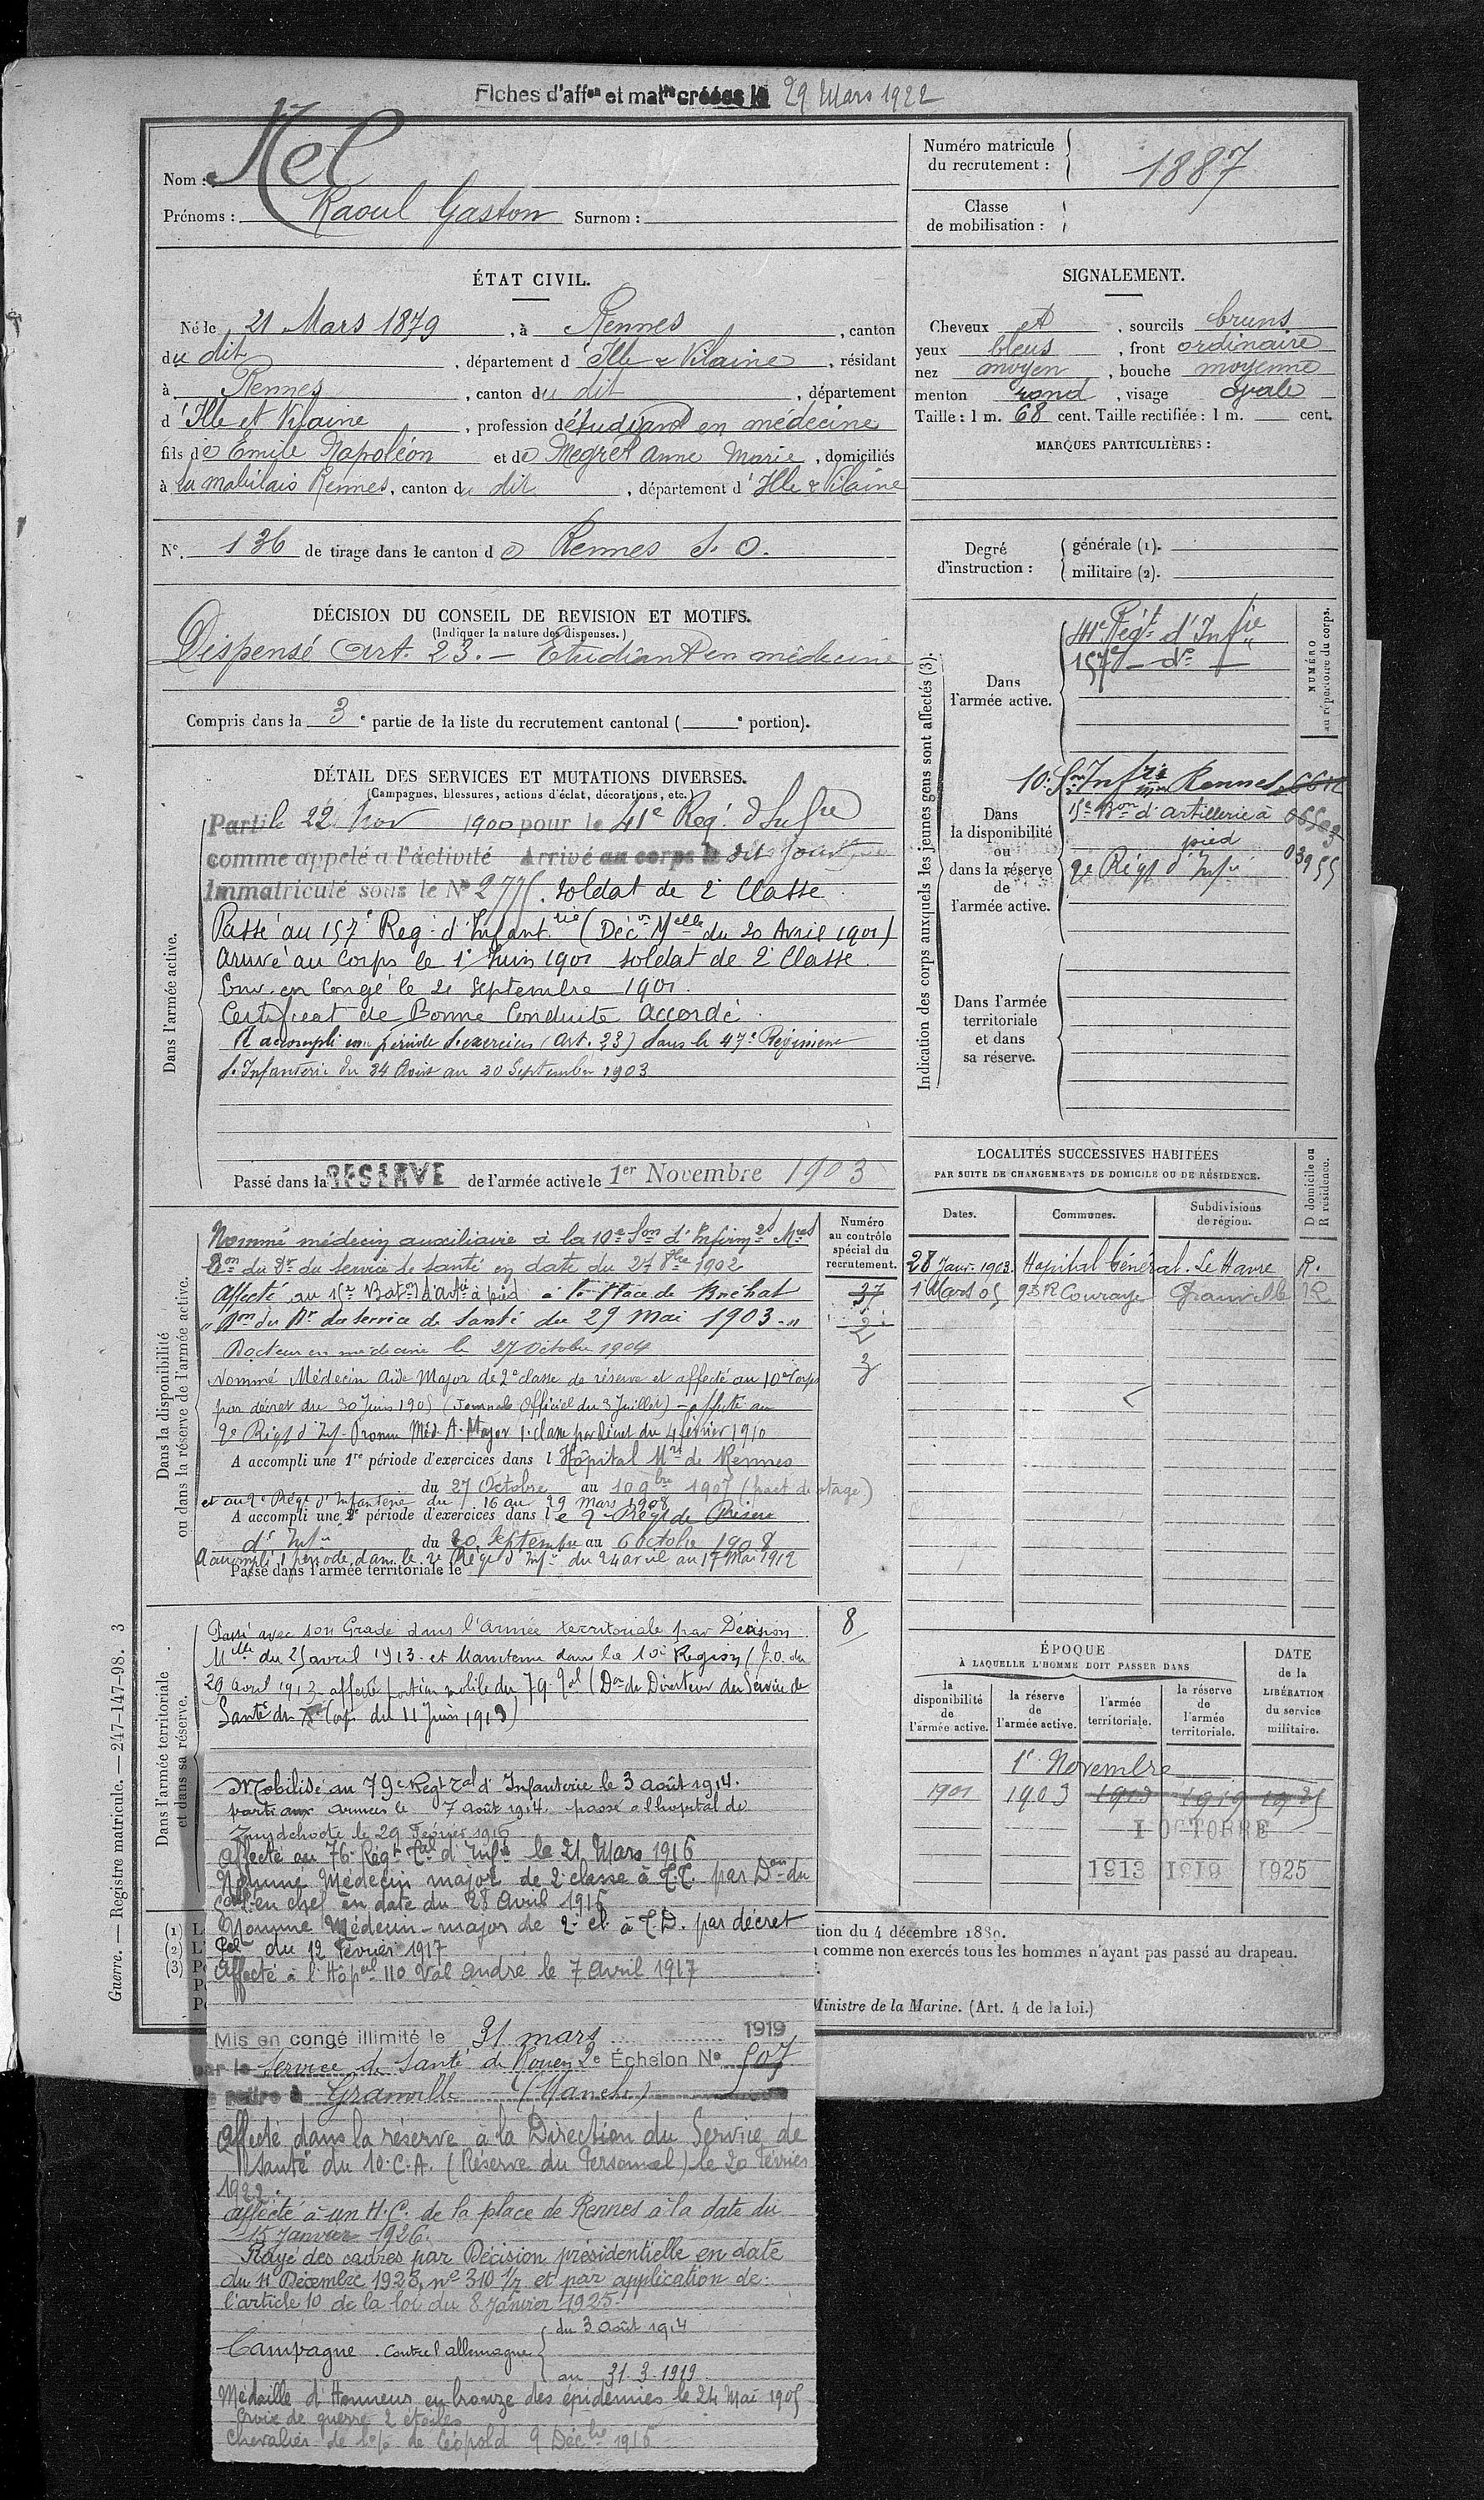 Fiches d'aff^on et mat^le créées le 29 Mars 1922
Nom : Nel
Prénoms : Raoul Gaston Surnom :
Numéro matricule
du recrutement : 1887
Classe
de mobilisation :
ÉTAT CIVIL.
Né le 21 Mars 1879, à Rennes, canton
du dit, département d'Ille & Vilaine, résidant
à Rennes, canton du dit, département
d'Ille et Vilaine, profession d'étudiant en médecine
fils de Emile Napoléon et de Megret Anne Marie, domiciliés
à la mabilais Rennes, canton du dit, département d'Ille & Vilaine
N° 136 de tirage dans le canton de Rennes S. O.
SIGNALEMENT.
Cheveux et, sourcils bruns
yeux bleus, front ordinaire
nez moyen, bouche moyenne
menton rond, visage ovale
Taille : 1 m. 68 cent. Taille rectifiée : 1 m. cent.
MARQUES PARTICULIÈRES :
Degré
d'instruction :
générale (1).
militaire (2).
DÉCISION DU CONSEIL DE REVISION ET MOTIFS.
(Indiquer la nature des dispenses.)
Dispensé Art. 23. — Etudiant en médecine
Compris dans la 3e partie de la liste du recrutement cantonal ( e portion).
DÉTAIL DES SERVICES ET MUTATIONS DIVERSES.
(Campagnes, blessures, actions d'éclat, décorations, etc.)
Dans l'armée active.
Parti le 22 Nov 1900 pour le 41e Reg. d'Infrie
comme appelé à l'activité Arrivé au corps le dit jour
Immatriculé sous le N° 2775. soldat de 2e Classe
Passé au 157e Reg. d'Infanterie (Décon Melle du 20 Avril 1901)
arrivé au corps le 1er Juin 1901 soldat de 2e Classe.
Env. en congé le 21 Septembre 1901.
Certificat de Bonne Conduite Accordé.
A accompli une période d'exercices (art. 23) dans le 47e Régiment
d'Infanterie du 24 Août au 20 Septembre 1903
Passé dans la RESERVE de l'armée active le 1er Novembre 1903
Indication des corps auxquels les jeunes gens sont affectés (3).
NUMÉRO
au répertoire du corps.
Dans
l'armée active.
41e Régt d'Infie
157e — do —
Dans
la disponibilité
ou
dans la réserve
de
l'armée active.
10e Son Infrs Mres Rennes
15e Bon d'artillerie à
pied
2e Régt d'Infie 03955
Dans l'armée
territoriale
et dans
sa réserve.
LOCALITÉS SUCCESSIVES HABITÉES
PAR SUITE DE CHANGEMENTS DE DOMICILE OU DE RÉSIDENCE.
Dates.
Communes.
Subdivisions
de région.
D domicile ou
R résidence.
28 Janv. 1903. Hopital Général. Le Havre R.
1 Mars 05 93 R Couraye Granville R
Dans la disponibilité
ou dans la réserve de l'armée active.
Numéro
au contrôle
spécial du
recrutement.
37
2
3
Nommé médecin auxiliaire à la 10e Son d'Infirmrs Mres
Don du Dr du service de santé en date du 27 8bre 1902
Affecté au 15e Baton d'artie à pied à la Place de Bréhat
Don du Dr du service de santé du 29 Mai 1903
Docteur en médecine le 27 octobre 1904
Nommé Médecin Aide Major de 2e classe de réserve et affecté au 10e Corps
par décret du 30 Juin 1905 (Journal Officiel du 3 Juillet) - affecté au
2e Régt d'Inf. Promu Méd. A. Major 1e classe par décret du 4 février 1910
A accompli une 1re période d'exercices dans l'Hôpital Mre de Rennes
du 27 Octobre au 10 9bre 1907 (part de stage)
et au 2e Régt d'Infanterie du 16 au 29 mars 1908
A accompli une 2e période d'exercices dans le 2e Régt de Réserve
d'Infie du 20 Septembre au 6 octobre 1908
A accompli 1 période dans le 2e Régt d'Infie du 24 avril au 17 Mai 1912
Passé dans l'armée territoriale le
Dans l'armée territoriale
et dans sa réserve.
8
Passé avec son Grade dans l'Armée territoriale par Décision
Mlle du 25 avril 1913 et Maintenu dans la 10e Région (J.O. du
29 avril 1913 affecté portion mobile du 79e Tal (Don du Directeur du Service de
Santé du Xe Corps du 11 Juin 1913)
Mobilisé au 79e Régt Tal d'Infanterie le 3 août 1914.
parti aux armées le 7 août 1914. passé à l'hopital de
Zuydchoote le 29 Février 1916
Affecté au 76e Régt Tal d'Infie le 21 Mars 1916
Nommé Médecin major de 2e classe à T.T. par Don du
Gal en chef en date du 28 Avril 1916
Nommé Médecin-major de 2e cl. à T.D. par décret
du 12 Février 1917
Affecté à l'Hôpal 110 Val André le 7 Avril 1917
Mis en congé illimité le 31 mars 1919
par le Service de Santé de Rouen 2e Échelon N° 507
se retire à Granville (Manche)
Affecté dans la réserve à la Direction du Service de
Santé du 10e C.A. (Réserve du Personnel) le 20 Février
1922.
affecté à un H.C. de la place de Rennes à la date du
15 Janvier 1926.
Rayé des cadres par Décision présidentielle en date
du 11 Décembre 1928, n° 310 1/7 et par application de
l'article 10 de la loi du 8 Janvier 1925.
Campagne contre l'allemagne { du 3 Août 1914
au 31-3-1919.
Médaille d'Honneur en bronze des épidémies le 24 Mai 1905
Croix de guerre 2 étoiles
Chevalier de l'O. de Léopold 9 Décbre 1916
ÉPOQUE
À LAQUELLE L'HOMME DOIT PASSER DANS
la
disponibilité
de
l'armée active.
la réserve
de
l'armée active.
l'armée
territoriale.
la réserve
de
l'armée
territoriale.
DATE
de la
LIBÉRATION
du service
militaire.
1er Novembre
1901 1903 1913 1919 1925
1 OCTOBRE
1913 1919 1925
(1)
(2)
(3)
tion du 4 décembre 1889.
comme non exercés tous les hommes n'ayant pas passé au drapeau.
Ministre de la Marine. (Art. 4 de la loi.)
Guerre. — Registre matricule. — 247-147-98. 3